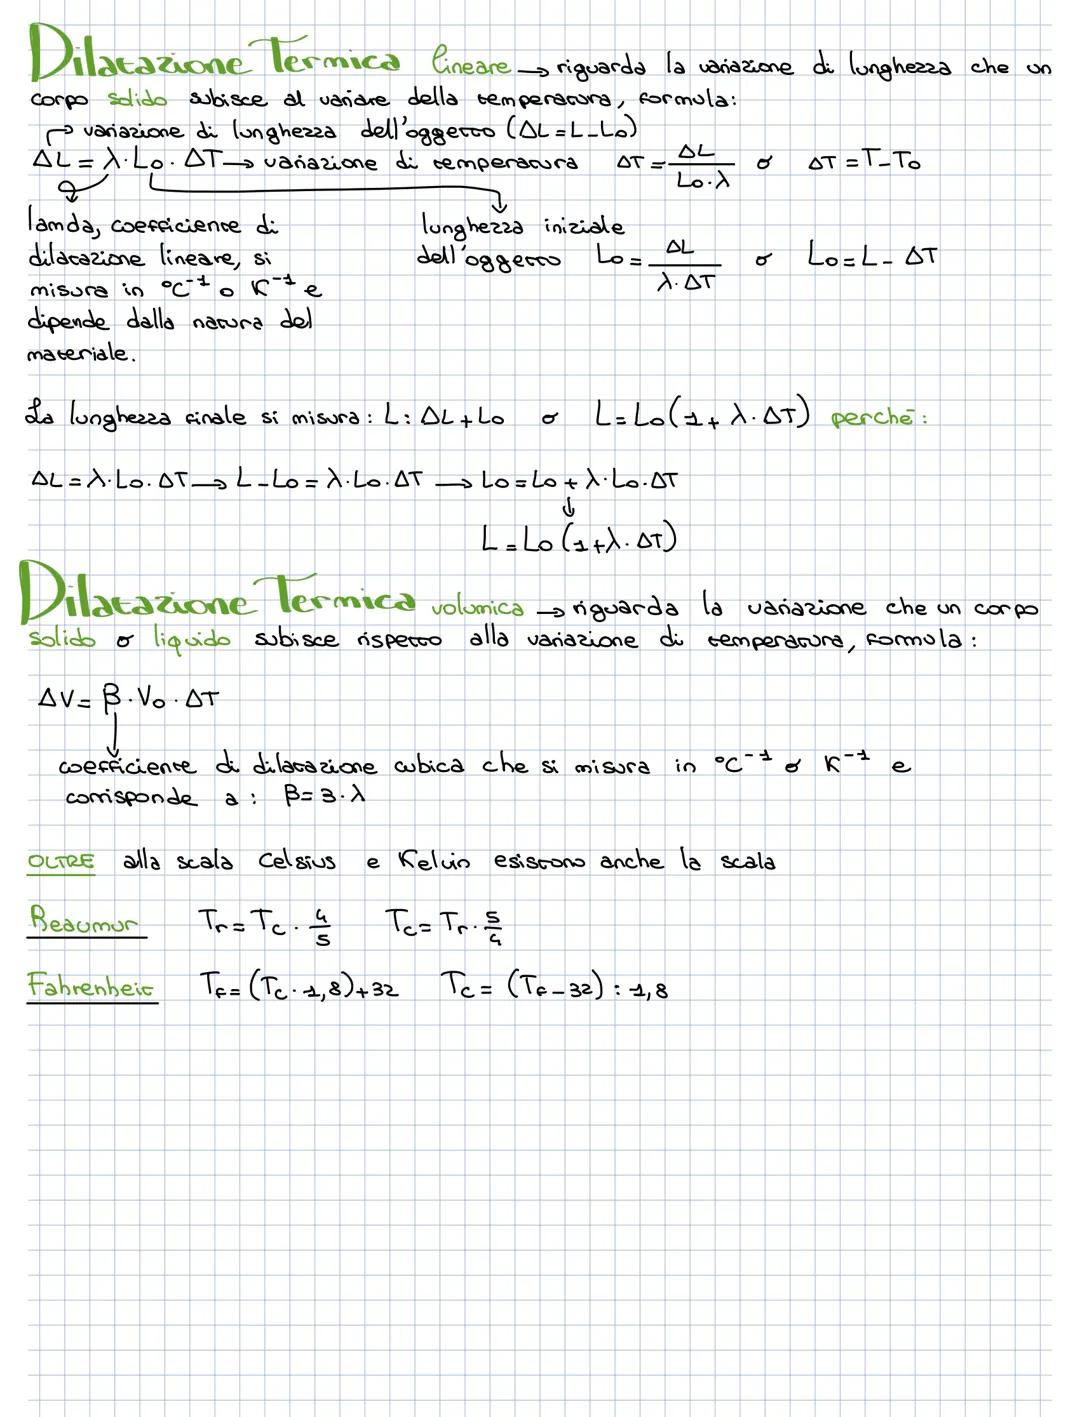 Dilatazione Termica lineare → riguarda la variazione di lunghezza che un
corpo solido subisce al variare della temperatura, formula:
variazione di lunghezza dell'oggetto (ΔL=L-L0)
ΔL = λ·L0·ΔT → variazione di temperatura ΔT = ΔL / L0·λ o ΔT = T-T0
lamda, coefficiente di
dilatazione lineare, si
misura in °C⁻¹ o K⁻¹ e
dipende dalla natura del
materiale.
lunghezza iniziale
dell'oggetto L0 = ΔL / λ·ΔT o L0=L-ΔT
La lunghezza finale si misura: L: ΔL+L0 o L=L0(1+λ·ΔT) perchē:
ΔL=λ·L0·ΔT → L-L0=λ·L0·ΔT → L0=L0+λ·L0·ΔT
↓
L=L0(1+λ·ΔT)
Dilatazione Termica volumica → riguarda la variazione che un corpo
solido o liquido subisce rispetto alla variazione di temperatura, formula:
ΔV=β·V0·ΔT
coefficiente di dilatazione cubica che si misura in °C⁻¹ o K⁻¹ e
corrisponde a: β=3·λ
OLTRE alla scala Celsius e Kelvin esistono anche la scala
Reaumur Tr=Tc·4/5 Tc=Tr·5/4
Fahrenheit TF=(Tc·1,8)+32 Tc=(TF-32):1,8